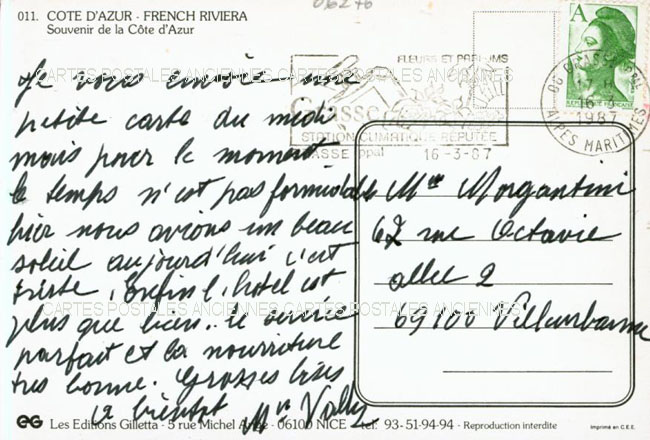 06276
011. COTE D'AZUR - FRENCH RIVIERA
Souvenir de la Côte d'Azur
A
REPUBLIQUE FRANÇAISE
FLEURS ET PARFUMS
Grasse
STATION CLIMATIQUE RÉPUTÉE
GRASSE ppal 16-3-87
06 GRASSE PPAL
16-3
1987
ALPES MARITIMES
Je vous envoie une
petite carte du midi
mais pour le moment
le temps n'est pas formidable
hier nous avions un beau
soleil aujourd'hui c'est
triste. Enfin l'hôtel est
plus que bien.. le service
parfait et la nourriture
très bonne. Grosses bises
à bientôt
Mme Morgantini
62 rue Octavie
allee 2
69100 Villeurbanne
CARTES POSTALES ANCIENNES CARTES POSTALES ANCIENNES CARTES POSTALES ANCIENNES
CARTES POSTALES ANCIENNES CARTES POSTALES ANCIENNES CARTES POSTALES ANCIENNES
EG Les Editions Gilletta - 5 rue Michel Ange - 06100 NICE - Tel. 93-51-94-94 - Reproduction interdite
Imprimé en C.E.E.